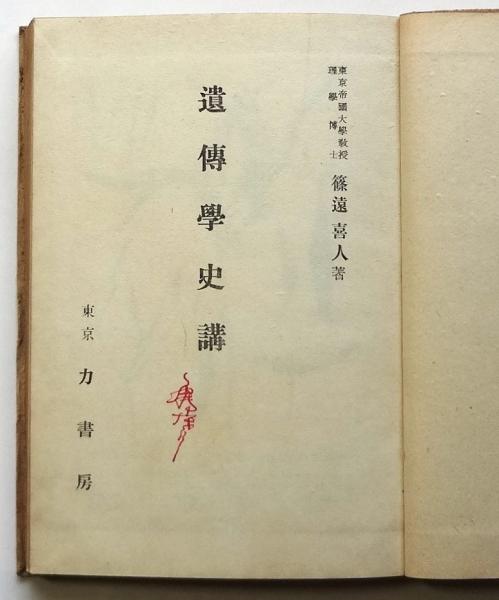 東京帝國大學教授
理學博士
篠遠喜人著
遺傳學史講
東京 力書房